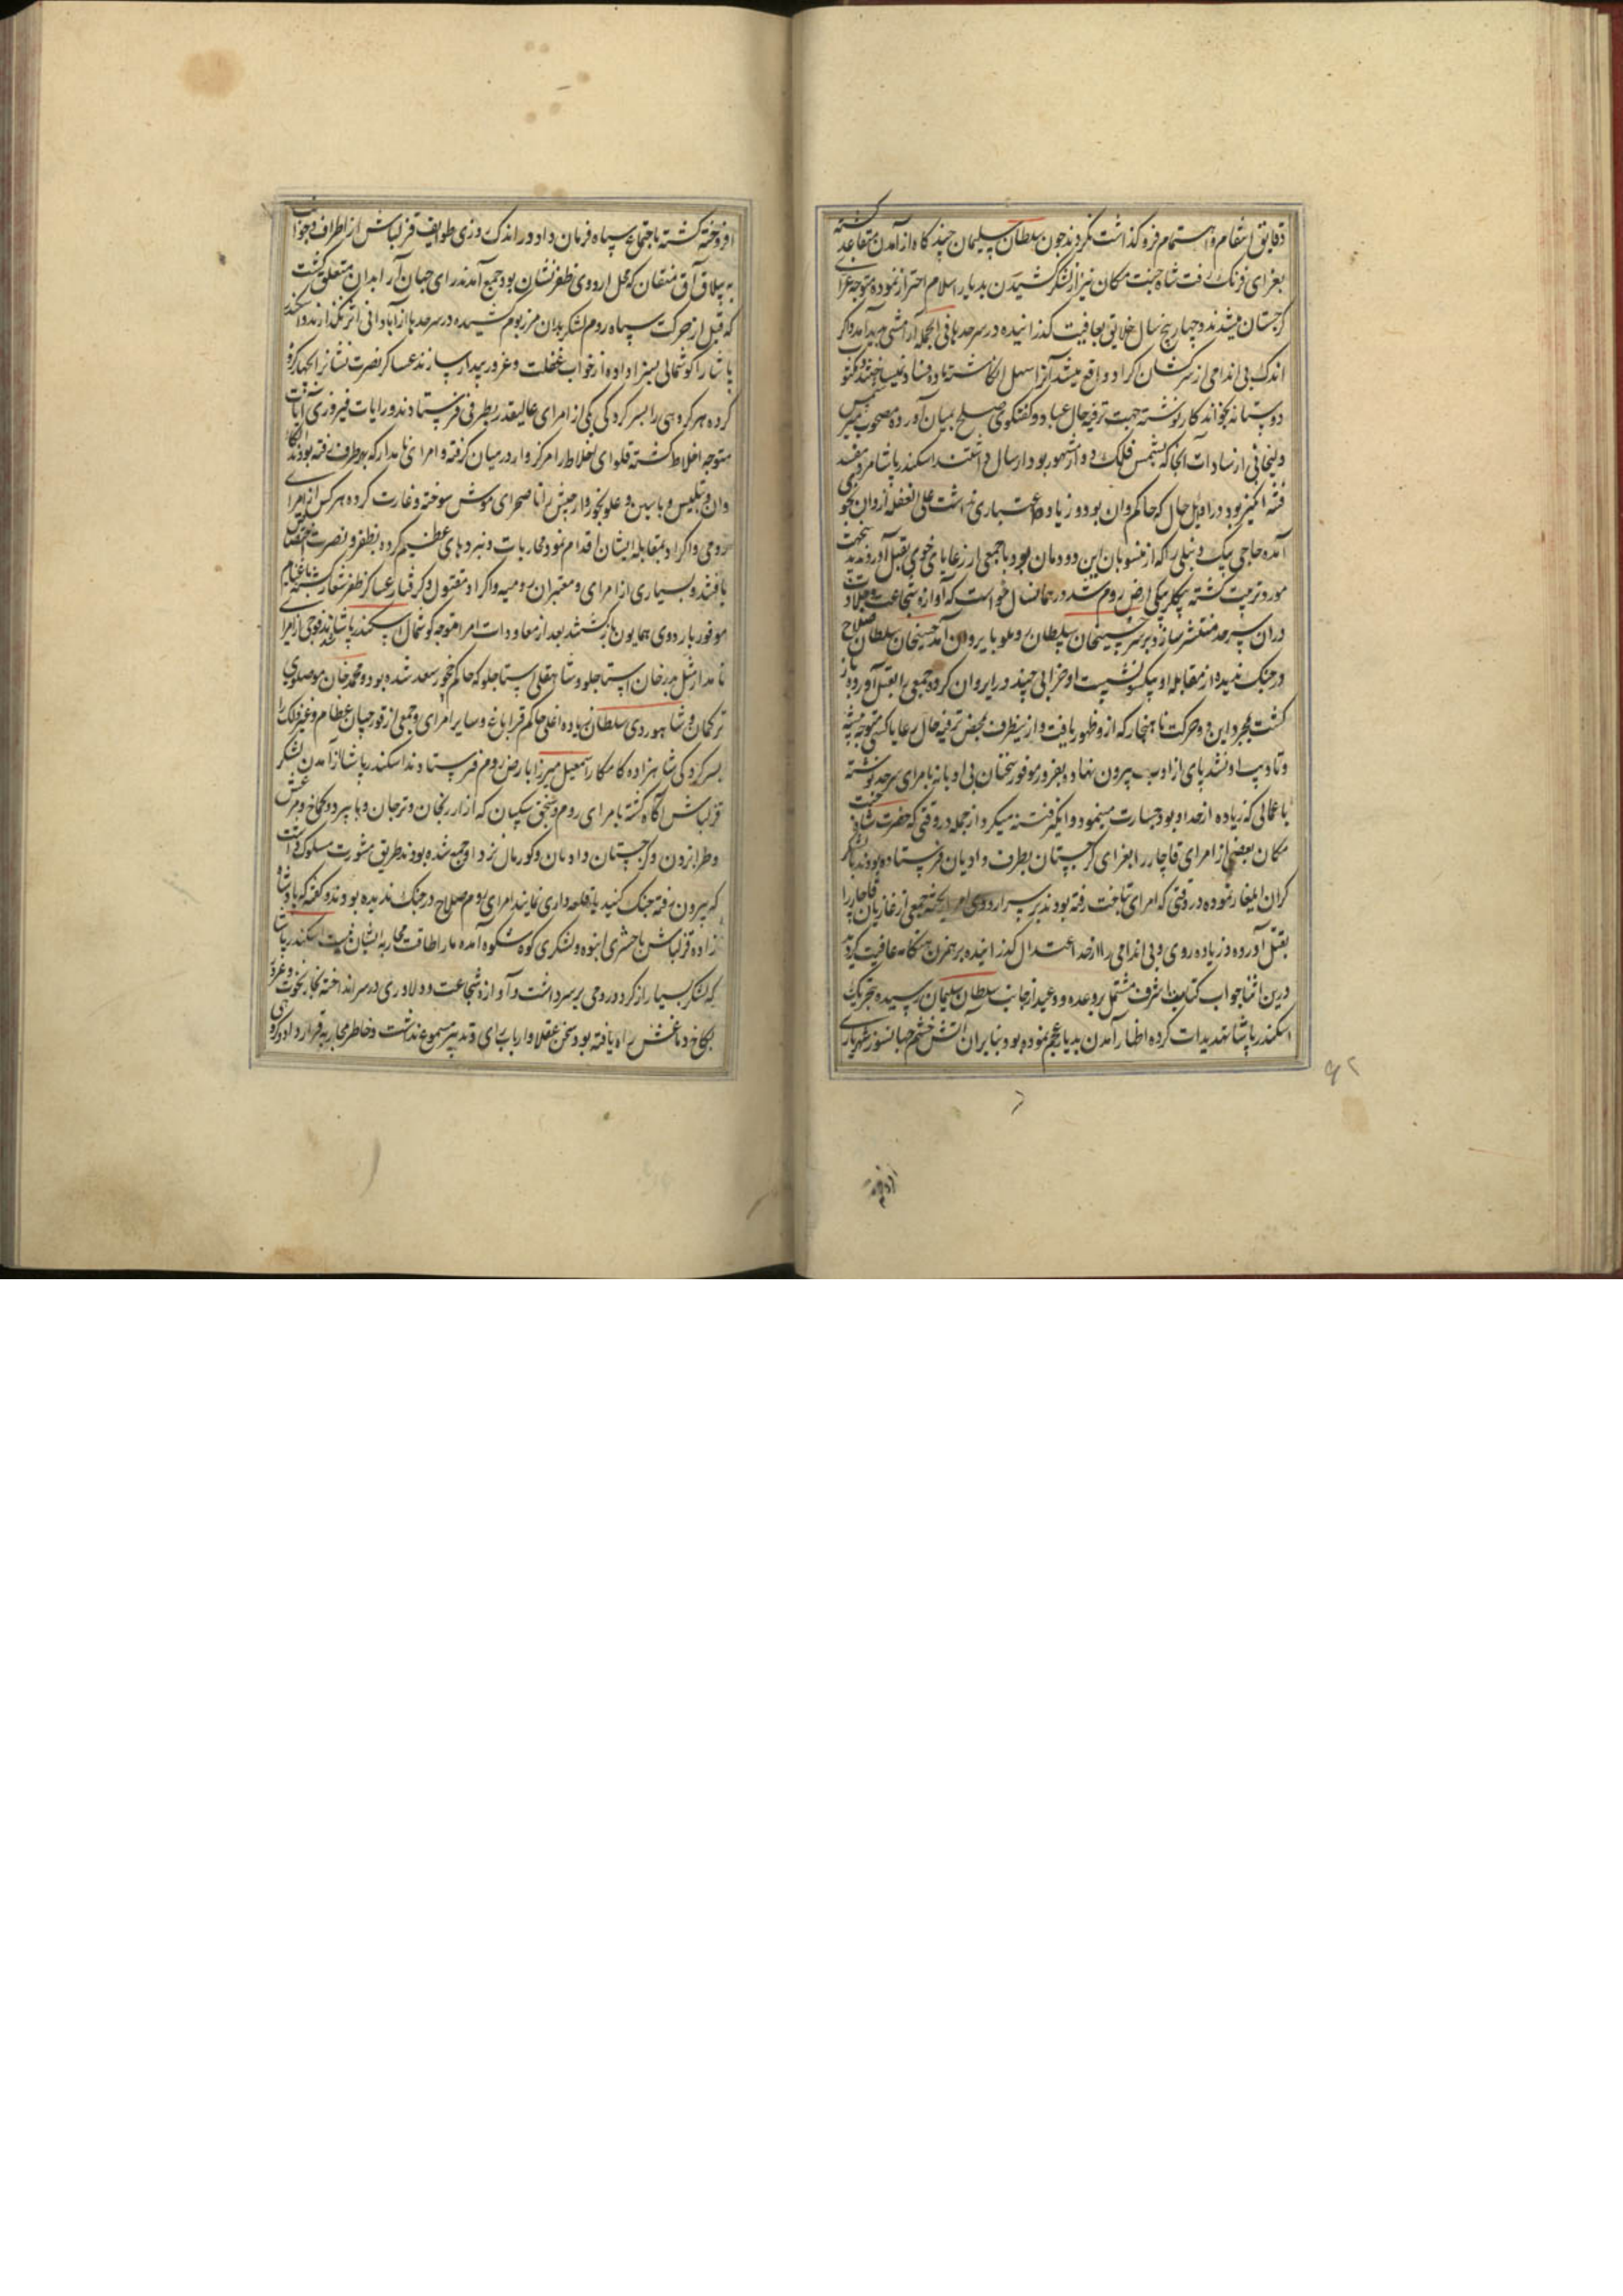 دقایق انتقام و اهتمام فرو گذاشت نکردند چون سلطان سلیمان چند گاه از آمدن متقاعد گشته
بغزای فرنگ رفت شاه جنت مکان نیز از لشکر کشیدن بدیار اسلام احتراز نموده متوجه غزای
گرجستان میشدند و چهار پنج سال خلایق بعافیت گذرانیده در سرحدها فی الجمله آرامشی پدید آمد و اگر
اندک بی اندامی از سرکشان اکراد واقع میشد آنرا سهل انگاشته ماده فساد نمیساختند و مکتوب
دوستانه بخواندگار نوشته جهت ترفیه حال عباد گفتگوی صلح بمیان آورده مصحوب میر شمس
دلیجانی از سادات آنجا که بشمس فلک زده مشهور بود ارسال داشتند اسکندر پاشا مرد مفسد
فتنه انگیز بود در اوایل حال که حاکم وان بود و زیاده اعتباری نداشت علی الغفله از وان بخوی
آمده حاجی بیک دنبلی را که از منسوبان این دودمان بود با جمعی از رعایای خوی بقتل آوردند بدینجهت
مورد تربیت گشته بیکلربیکی ارض روم شد در همان سال خواست که آوازه شجاعت و جلادت
در آن سرحد منتشر سازد بر سر حسینخان سلطان روملو بایروان آمد حسینخان سلطان صلاح
در جنک ندیده از مقابله او بیکسو نشست او خرابی چند در ایروان کرده جمعی را بقتل آورده باز
گشت بمجرد این دو حرکت ناهنجار که ازو ظهور یافت و ازینطرف بمحض ترفیه حال رعایا کسی متوجه تنبیه
و تادیب او نشد پای از ادب بیرون نهاده بغرور موفور سخنان بی ادبانه بامرای سرحد نوشته
باعمالی که زیاده از حد او بود جسارت مینمود و انگیز فتنه میکرد از جمله در وقتی که حضرت شاه جنت
مکان بعضی از امرای قاجار را بغزای گرجستان بطرف دادیان فرستاده بودند با لشکر
گران ایلغار نموده در وقتی که امرای بتاخت رفته بودند بر سر اردوی امرا ریخته جمعی از غازیان قاجار را
بقتل آورده و زیاده روی و بی اندامی را از حد اعتدال گذرانیده برهمزن هنگامه عافیت گردید
درین اثنا جواب کتابت اشرف مشتمل بر وعده و وعید از جانب سلطان سلیمان رسیده بتحریک
اسکندر پاشا تهدیدات کرده اظهار آمدن بدیار عجم نموده بود بنابر آن آتش خشم جهانسوز شهریاری
۹۲
افروخته
افروخته گشته باجتماع سپاه فرمان داد و در اندک روزی طوایف قزلباش از اطراف و جوانب
به ییلاق آق منقان که محل اردوی ظفر نشان بود جمع آمدند رای جهان آرا بدان متعلق گشت
که قبل از حرکت سپاه روم لشکر بدان مرز بوم کشیده در سرحدها از آبادانی اثر نگذارند و اسکندر
پاشا را گوشمالی بسزا داده از خواب غفلت و غرور بیدار سازند عساکر نصرت نشانرا چهار گروه
کرده هر گروهی را بسر کردگی یکی از امرای عالیقدر بطرفی فرستادند و رایات فیروزی آیات
متوجه اخلاط گشته قلوای اخلاط را مرکزوار در میان گرفته و امرای نامدار که بهر طرف رفته بودند الکاء
وان و تبلیس و باسین و علونجور و ارجیش را تا صحرای موش سوخته و غارت کرده هر کس از امرای
رومی و اکراد بمقابله ایشان اقدام نمود محاربات و نبردهای عظیم کرده بظفر و نصرت اختصاص
یافتند و بسیاری از امرای و معتبران رومیه و اکراد مقتول و گرفتار عساکر ظفر شعار گشته با غنایم
موفور باردوی همایون بازگشتند بعد از معاودت امرا متوجه گوشمال اسکندر پاشا شده فوجی از امرای
نامدار مثل بدرخان استاجلو و شاهقلی استاجلو که حاکم چخور سعد شده بود و محمد خان موصلوی
ترکمان و شاهوردی سلطان زیاد اغلی حاکم قراباغ و سایر امرای و جمعی از قورچیان عظام و غیر ذلک را
بسرکردگی شاهزاده کامکار اسمعیل میرزا بارض روم فرستادند اسکندر پاشا از آمدن لشکر
قزلباش آگاه گشته بامرای روم و سنجق بیکیان که از ارزنجان و ترجان و بایبرد و کماخ و مرعش
و طرابزون و گرجستان و ادمان و کورمال نزد او جمع شده بودند طریق مشورت مسلوک داشت
که بیرون رفته جنگ کنند یا قلعه داری نمایند امرای روم صلاح در جنگ ندیده بودند و گفته که با پادشاه
زاده قزلباش با حشری انبوه و لشکری کوه شکوه آمده ما را طاقت محاربه ایشان نیست اسکندر پاشا
که لشکر بسیار از کرد و رومی بر سر داشت و آوازه شجاعت و دلاوری در سر انداخته بخار نخوت و غرور
بکاخ دماغش راه یافته بود سخن عقلا و ارباب رای و تدبیر مسموع نداشت و خاطر بمحاربه قرار داد و گروهی